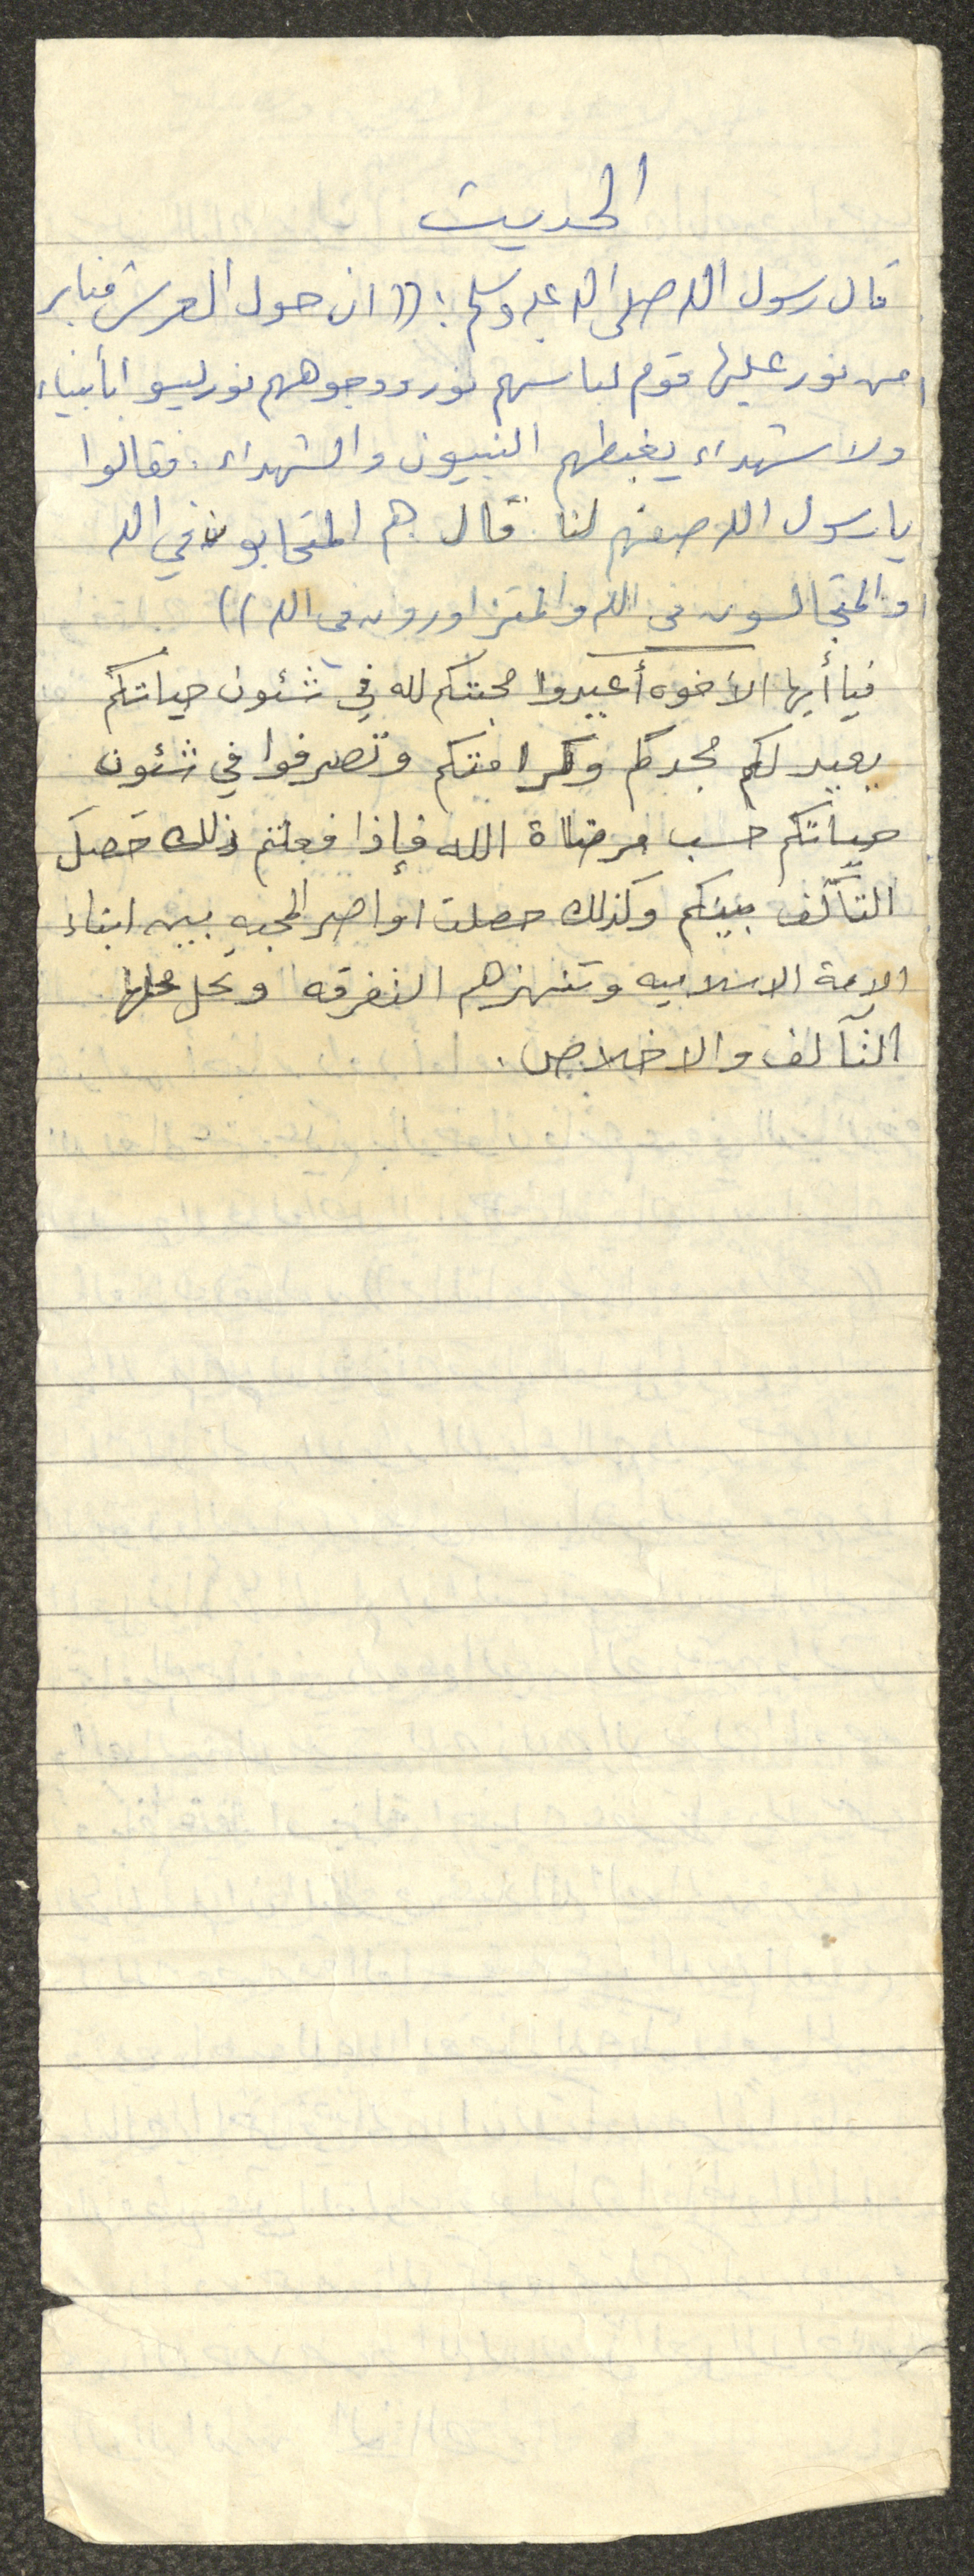 الحديث
قال رسول الله صلى الله عليه وسلم : (( ان حول العرش منابر
من نور عليها قوم لباسهم نور ووجوههم نور ليسوا بأنبياء
ولا شهداء يغبطهم النبيون والشهداء . فقالوا
يا رسول الله صفهم لنا . قال هم المتحابون في الله
والمتجالسون في الله والمتزاورون في الله ))
فيا أيها الأخوه أعيدوا محبتكم لله في شئون حياتكم
يعيد لكم مجدكم وكرامتكم وتصرفوا في شئون
حياتكم حسب مرضاة الله فإذا فعلتم ذلك حصل
التآلف بينكم وكذلك حصلت اواصر المحبه بين ابناء
الامة الاسلاميه وتنهزهم التفرقه وتحل محلها
التآلف والاخلاص .